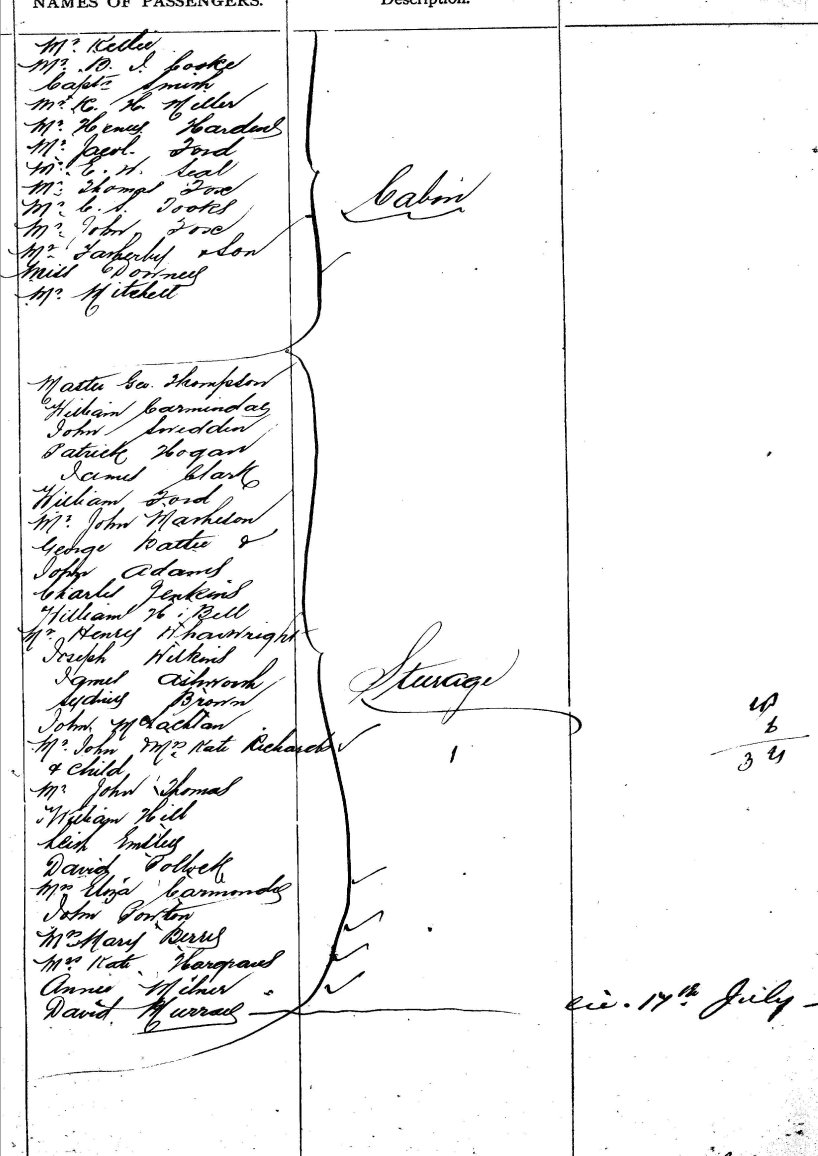 NAMES OF PASSENGERS.
Description.
Mr. Kellie
Mr. B. J. Cooke
Capt. Smith
Mr. R. H. Miller
Mr. Henry
Mr. Jacob Ford
Mr. E. W. Seal
Mr. Thomas Foxe
Mr. C. S. Tooks
Mr. John Foxe
Mr. & Son
Miss Downey
Mr. Mitchell
Cabin
Master Geo. Thompson
William
John Snedden
Patrick Hogan
James Clark
William Ford
Mr. John
George &
John Adams
Charles Jenkins
William H. Bell
Mr. Henry Wharwright
Joseph Wilkins
James Ashworth
Sydney Brown
Sturage
John McLachlan
Mr. John & Mrs Kate Richards
1
& Child
34
Mr John Thomas
William Hill
Emsley
David Pollock
Mrs Eliza
John Powton
Mrs Mary Berry
Mrs Kate Hargraves
Annie Milner
David Murray
17th July